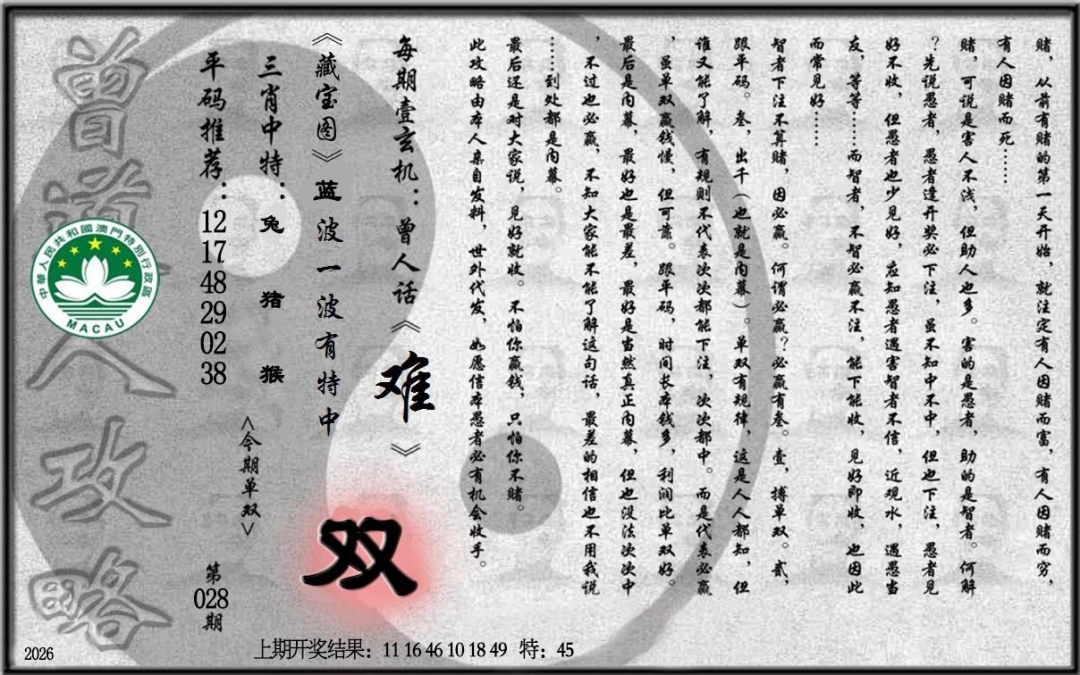 赌，从前有赌的第一天开始，就注定有人因赌而富，有人因赌而穷，
有人因赌而死……
赌，可说是害人不浅，但助人也多。害的是愚者，助的是智者。何解
？先说愚者，愚者逢开奖必下注，虽不知中不中，但也下注，愚者见
好不收，但愚者也少见好，应知愚者遇害智者不信，近观水，遇愚当
友，等等……而智者，不智必赢不注，能下能收，见好即收，也因此
而常见好……
智者下注不算赌，因必赢。何谓必赢？必赢有叁。壹，搏单双。贰，
跟平码。叁，出千（也就是内幕）。单双有规律，这是人人都知，但
谁又能了解，有规则不代表次次都能下注，次次都中。而是代表必赢
，虽单双赢钱慢，但可靠。跟平码，时间长本钱多，利润比单双好。
最后是内幕，最好也是最差，最好是当然真正内幕，但也没法次次中
，不过也必赢，不知大家能不能了解这句话，最差的相信也不用我说
……到处都是内幕。
最后还是对大家说，见好就收。不怕你赢钱，只怕你不赌。
此攻略由本人亲自发料，世外代发，如愿信本愚者必有机会收手。
每期壹玄机：曾人话《难》
《藏宝图》蓝波一波有特中
双
三肖中特：兔 猪 猴
<今期单双>
平码推荐：12 17 48 29 02 38
第028期
曾道人攻略
中華人民共和國澳門特別行政區
MACAU
2026
上期开奖结果：11 16 46 10 18 49 特：45